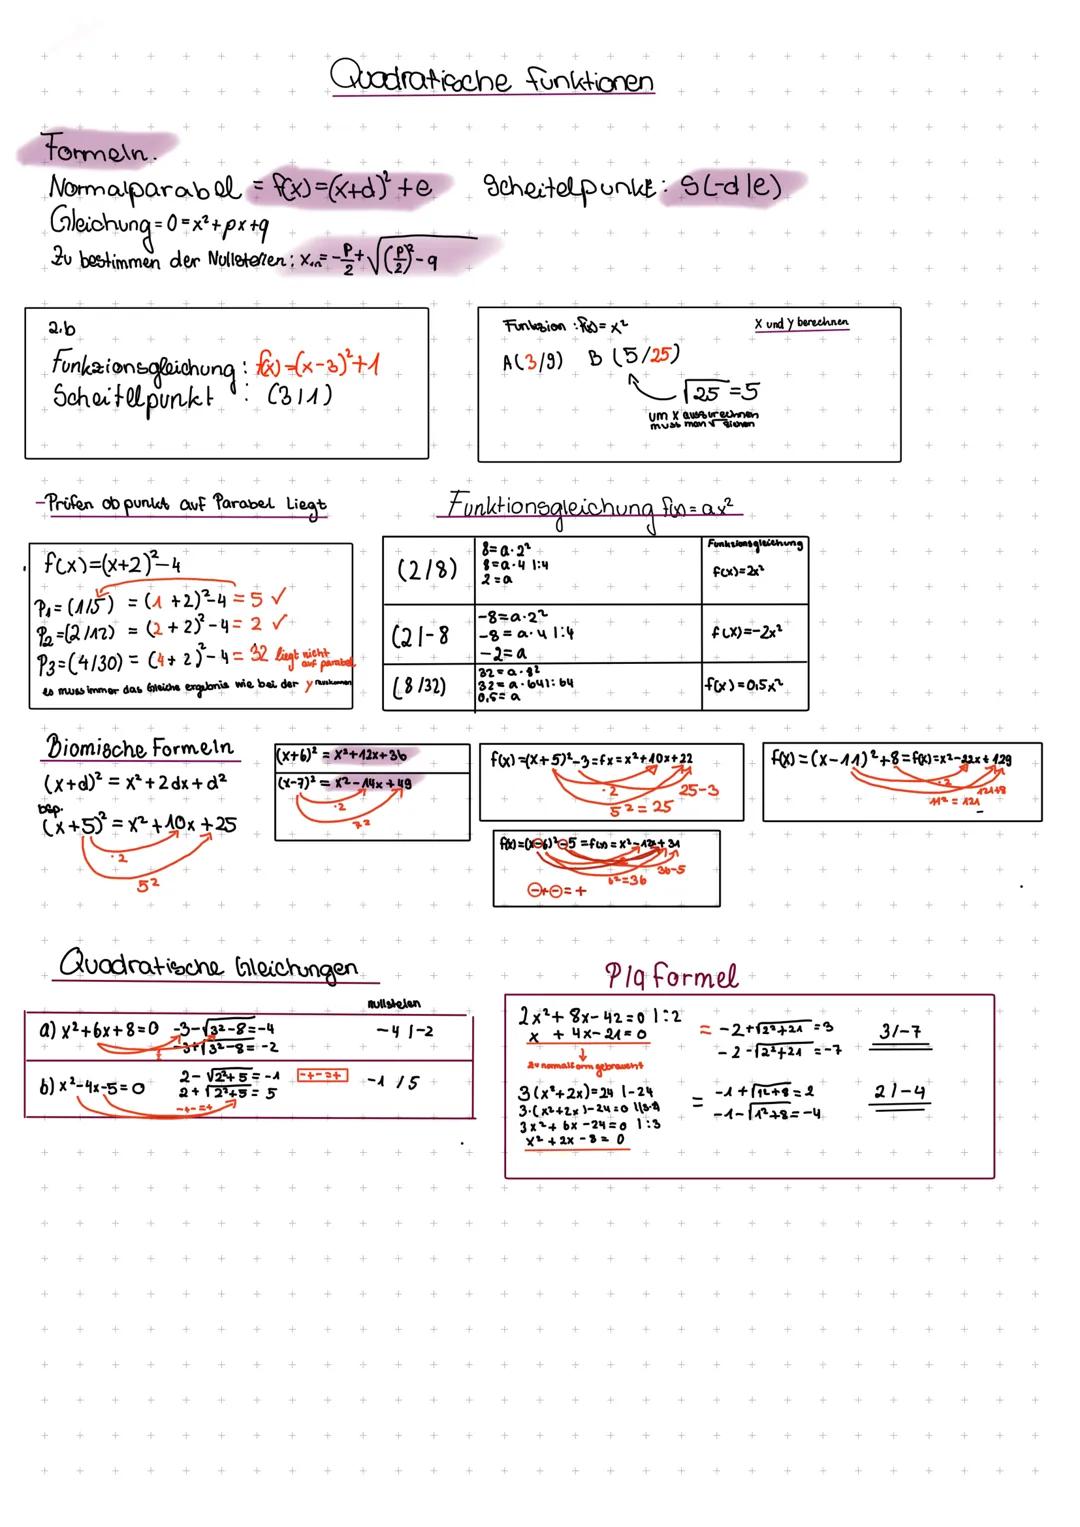 Quadratische Funktionen
Formeln.
Normalparabel = f(x)=(x+d)²+e Scheitelpunkt: S(-d|e)
Gleichung=0=x²+px+q
Zu bestimmen der Nullstellen: x₁,₂=-p/2+√(p/2)²-q
2.b
Funkzionsgleichung: f(x)=(x-3)²+1
Scheitellpunkt : (3|1)
Funkzion: f(x)=x² x und y berechnen
A(3/9) B(5/25)
√25=5
um x auszurechnen
muss man √ ziehen
-Prüfen ob punkt auf Parabel Liegt
f(x)=(x+2)²-4
P₁=(1/5) =(1+2)²-4=5 ✓
P₂=(2/12) =(2+2)²-4=2 ✓
P3=(4/30)=(4+2)²-4=32 liegt nicht auf parabel
es muss immer das Gleiche ergebnis wie bei der y rauskommen
Funktionsgleichung f(x)=ax²
Funkzionsgleichung
(2/8) 8=a·2²
8=a·4 |:4
2=a
f(x)=2x²
(2|-8 -8=a·2²
-8=a·4 |:4
-2=a
f(x)=-2x²
(8/32) 32=a·8²
32=a·64|:64
0,5=a
f(x)=0,5x²
Biomische Formeln
(x+d)²=x²+2dx+d²
bsp.
(x+5)²=x²+10x+25
·2
5²
(x+6)²=x²+12x+36
(x-7)²=x²-14x+49
·2
7²
f(x)=(x+5)²-3=fx=x²+10x+22
·2 25-3
5²=25
f(x)=(x-11)²+8=f(x)=x²-22x+129
·2 121+8
11²=121
f(x)=(x-6)²-5=f(x)=x²-12x+31
6²=36 36-5
⊖+⊖=+
Quadratische Gleichungen
nullstelen
a) x²+6x+8=0 -3-√3²-8=-4 -4|-2
-3+√3²-8=-2
b) x²-4x-5=0 2-√2²+5=-1 -+-=+ -1/5
2+√2²+5=5
-+-=+
P/q Formel
2x²+8x-42=0 |:2
x +4x-21=0 = -2+√2²+21=3 3/-7
-2-√2²+21=-7
zu normalform gebraucht
3(x²+2x)=24 |-24
3·(x²+2x)-24=0 = -1+√1²+8=2 2/-4
3x²+6x-24=0 |:3 -1-√1²+8=-4
x²+2x-8=0